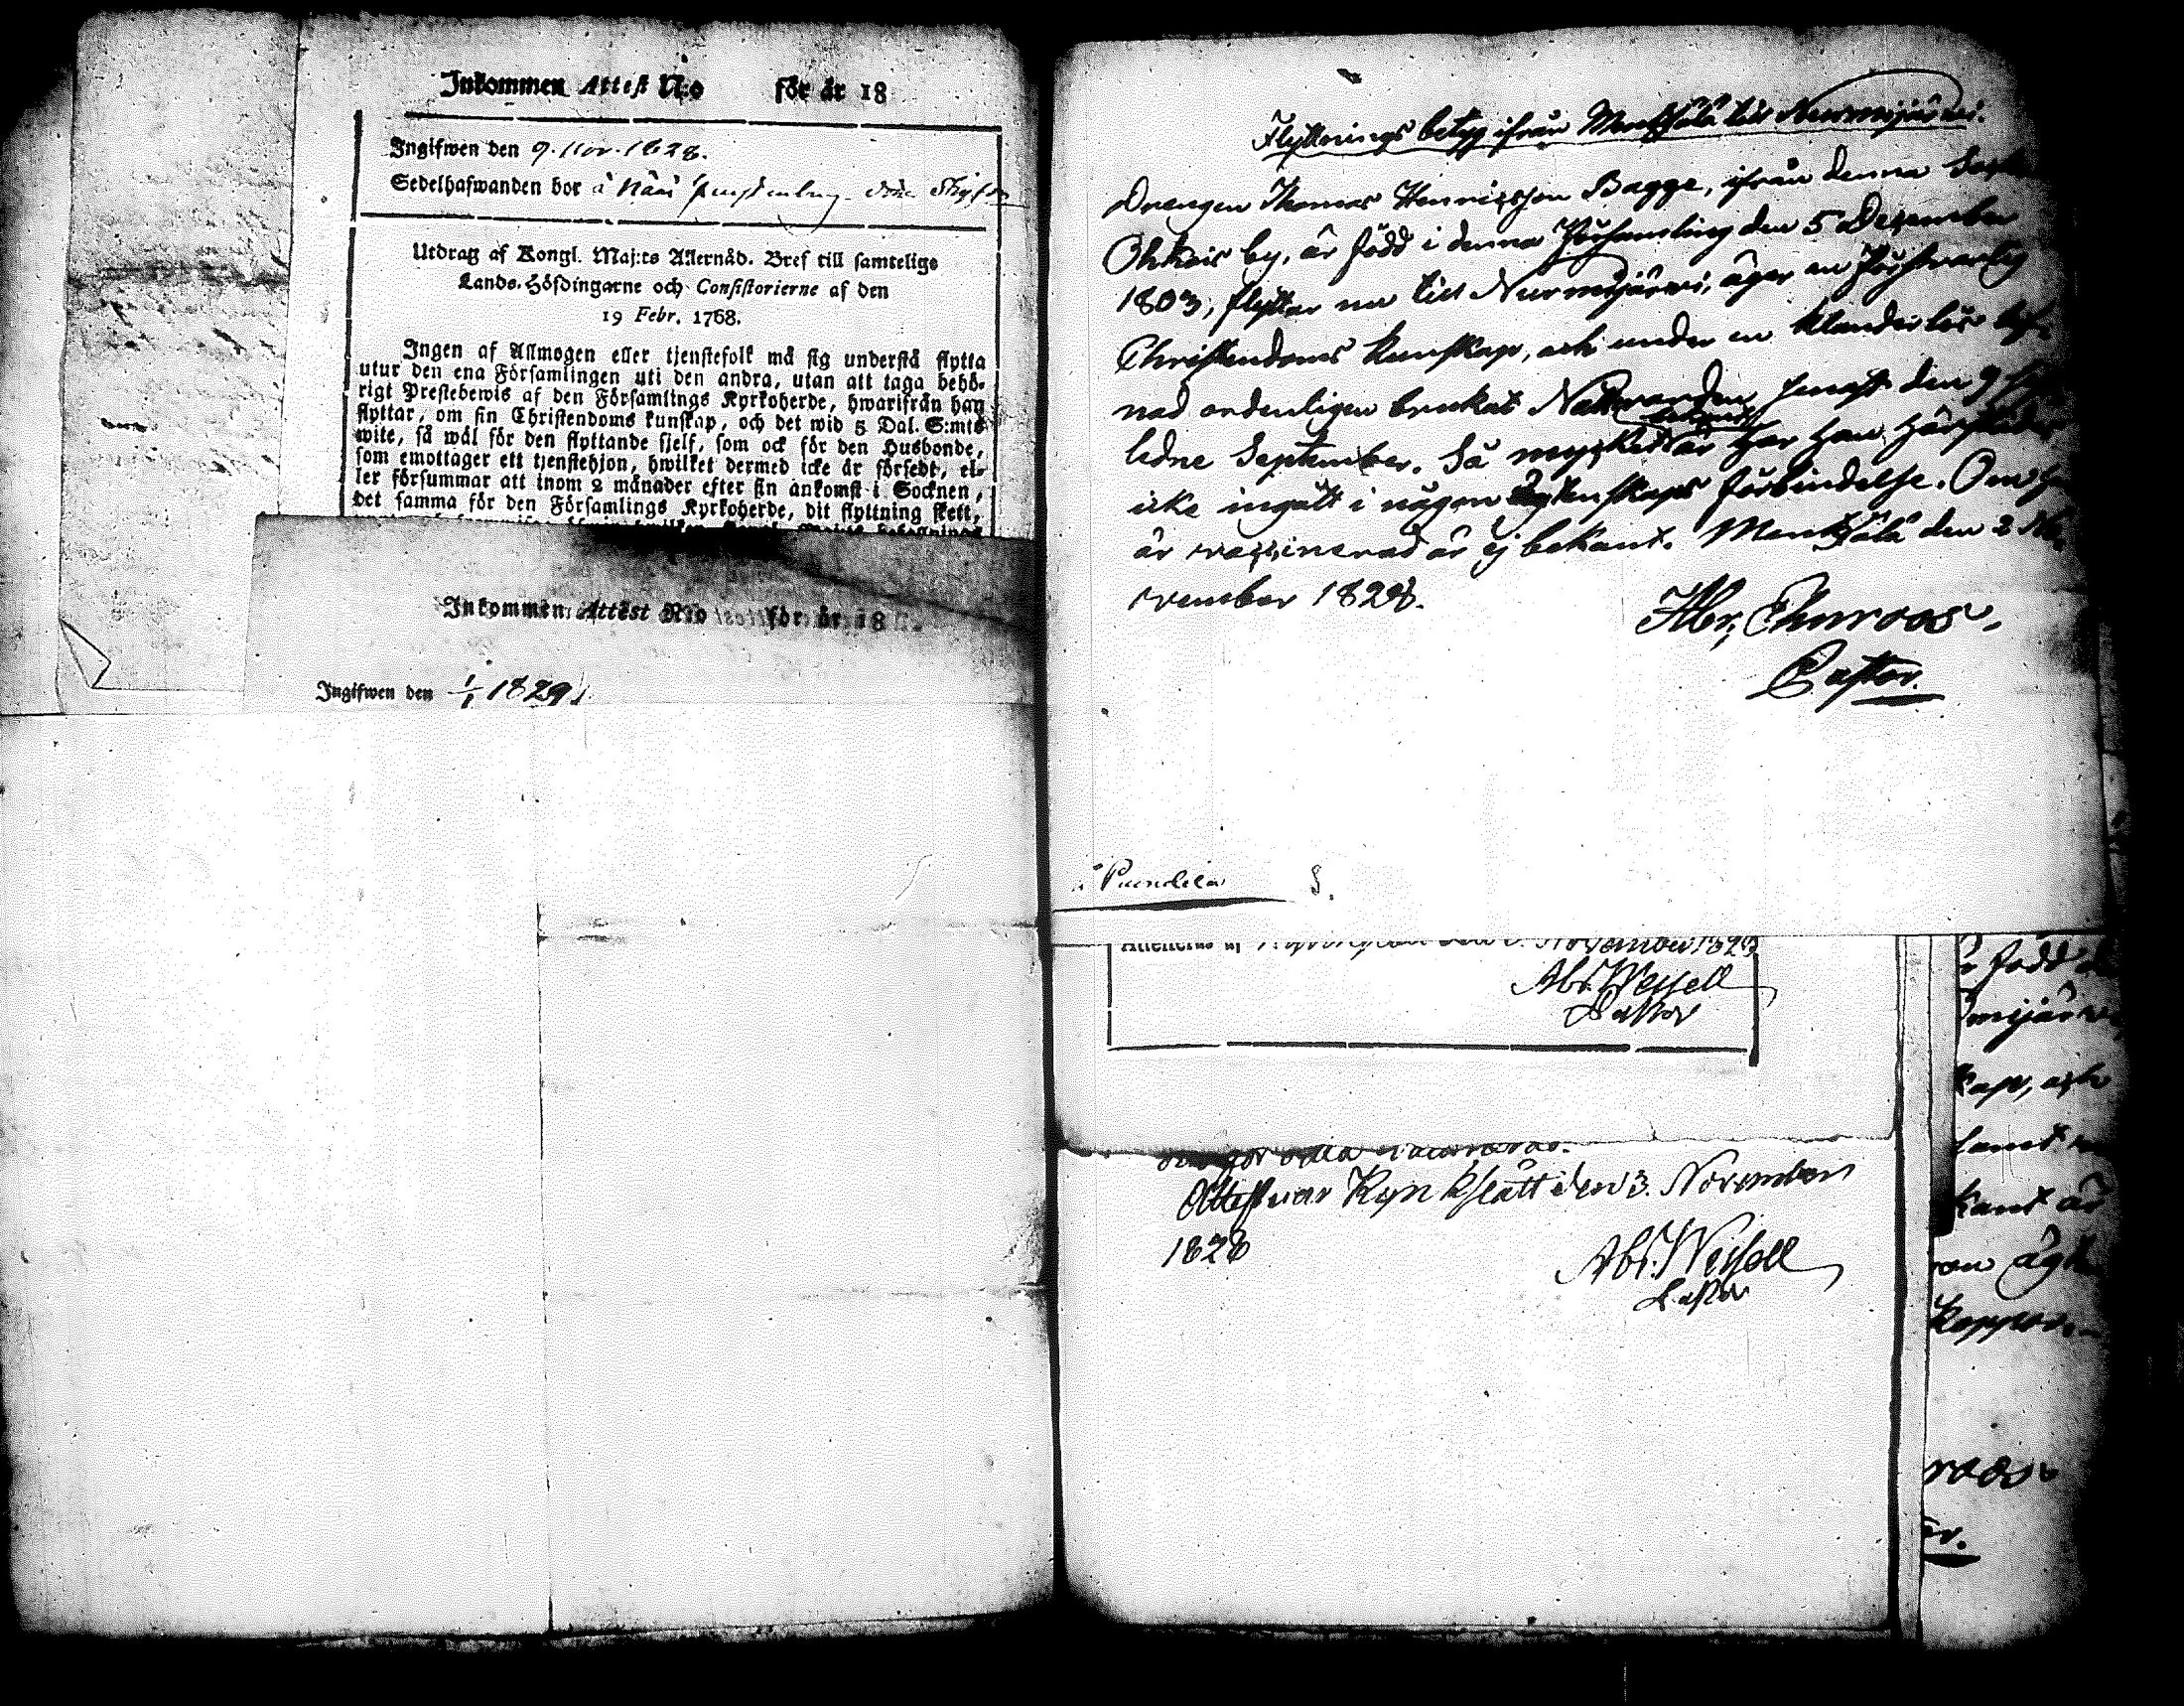 Inkommen Attest N:o för år 18
Ingifwen den 9. Nov. 1828.
Sedelhafwanden bor å Nääs
Utdrag af Kongl. Maj:ts Allernåd. Bref till samtelige
Lands-Höfdingarne och Consistorierne af den
19 Febr. 1768.
Ingen af Allmogen eller tjenstefolk må sig understå flytta
utur den ena Församlingen uti den andra, utan att taga behö-
rigt Prestebewis af den Församlings Kyrkoherde, hwarifrån han
flyttar, om sin Christendoms kunskap, och det wid 5 Dal. S:mts
wite, så wäl för den flyttande sjelf, som ock för den Husbonde,
som emottager ett tjenstehjon, hwilket dermed icke är försedt, el-
ler försummar att inom 2 månader efter sin ankomst i Socknen,
det samma för den Församlings Kyrkoherde, dit flyttning skett,
Inkommen Attest N:o för år 18
Ingifwen den 1/1 1829.
Flyttnings betyg ifrån Mentsälä till Nurmijärvi.
Drengen Thomas Henricsson Bagge, ifrån denna
Ohkois by, är född i denna Församling den 5 December
1803, flyttar nu till Nurmijärvi, äger en försvarlig
Christendoms kunskap, och under en klanderlös
nad ordentligen brukat Nattvarden senast den 9
ledne September. Så mycket bekant är har han härstädes
icke ingått i någon Ägtenskaps förbindelse. Om
är vaccinerad är ej bekant. Mentsälä den 2 No-
vember 1828.
Abr. Ehnroos.
Pastor.
å Pundila S.
November 1828
Abr. Wessell
Pastor
Attesterar Kyrkslätt den 3. November
1828
Abr. Wessell
Pastor
född
mijärvi
kap, och
samt
kant är
ägt
koppor.
roos
or.